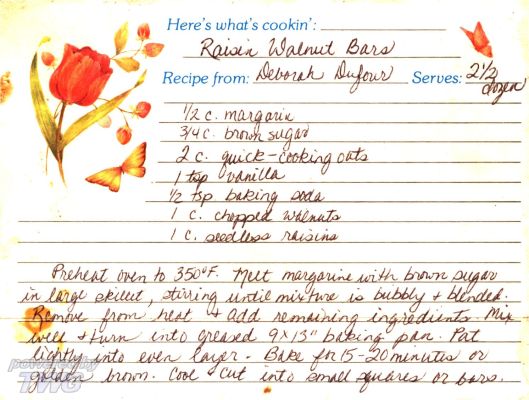 Here's what's cookin':
Raisin Walnut Bars
Recipe from: Deborah Dufour Serves: 2 1/2 dozen
1/2 c. margarin
3/4 c. brown sugar
2 c. quick-cooking oats
1 tsp vanilla
1/2 tsp baking soda
1 c. chopped walnuts
1 c. seedless raisins
Preheat oven to 350°F. Melt margarine with brown sugar
in large skillet, stirring until mixture is bubbly & blended.
Remove from heat & add remaining ingredients. Mix
well & turn into greased 9x13" baking pan. Pat
lightly into even layer. Bake for 15-20 minutes or
golden brown. Cool & cut into small squares or bars.
powered by
TWG